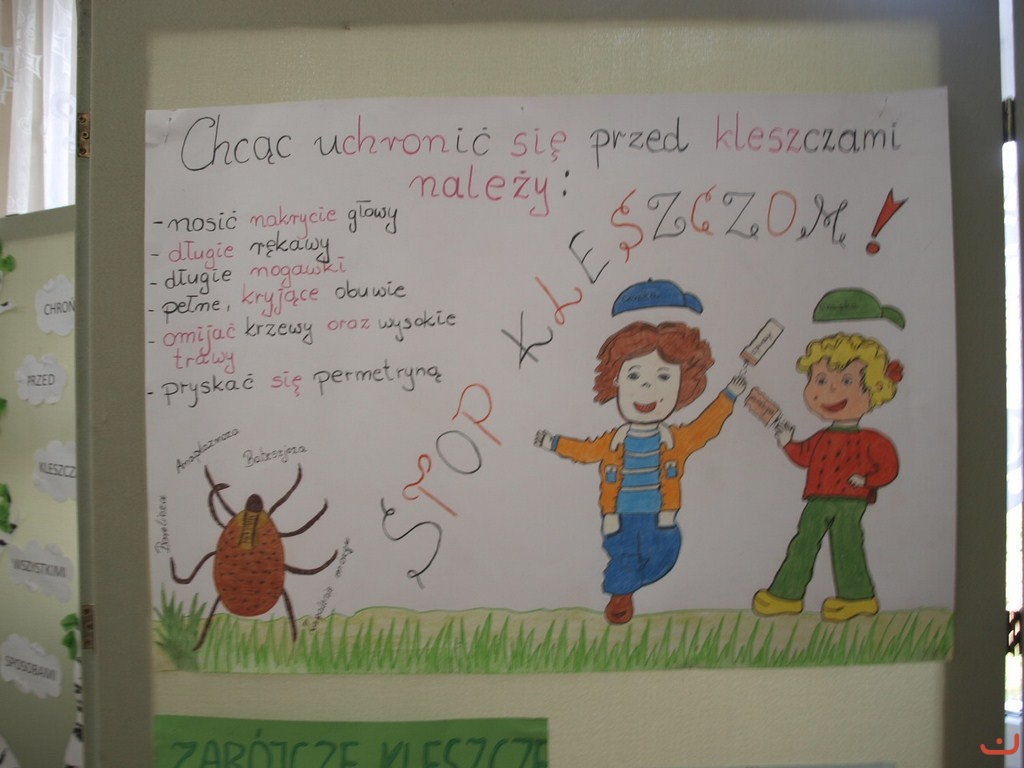 Chcąc uchronić się przed kleszczami
należy:
- nosić nakrycie głowy
- długie rękawy
- długie nogawki
- pełne, kryjące obuwie
- omijać krzewy oraz wysokie
trawy
- pryskać się permetryną
STOP KLESZCZOM!
Anaplazmoza
Babeszjoza
CHROŃ
PRZED
KLESZCZ
WSZYSTKIMI
SPOSOBAMI
ZABÓJCZE KLESZCZE